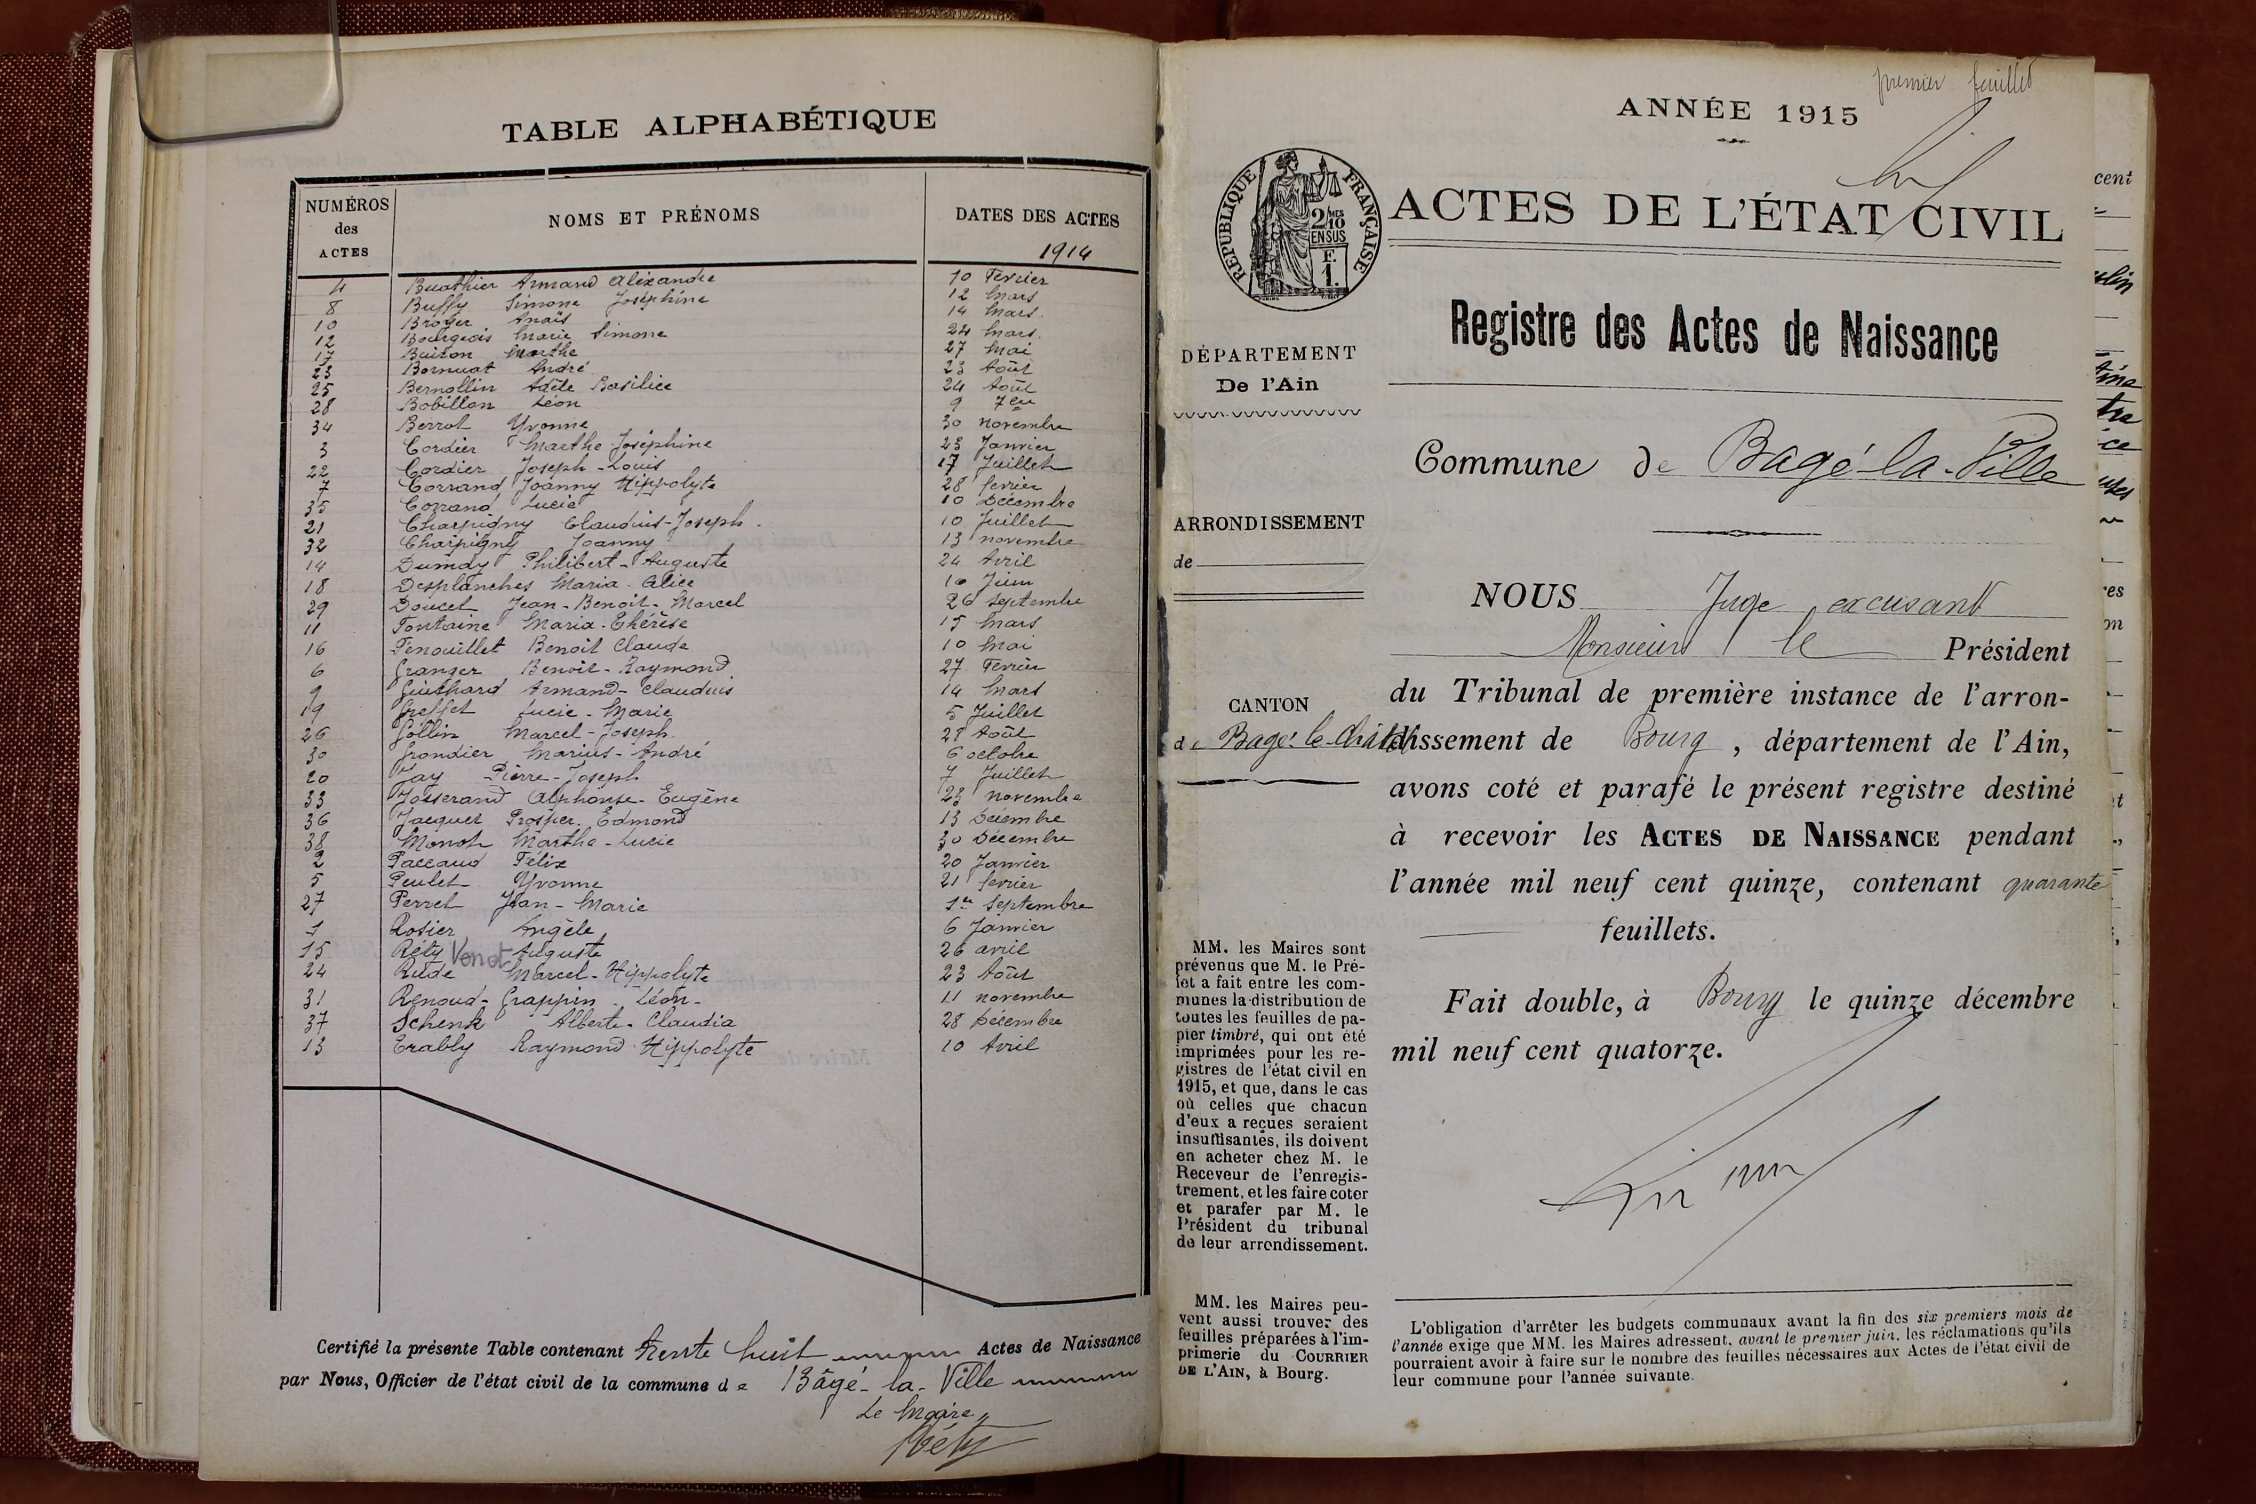 TABLE ALPHABÉTIQUE
NUMÉROS des ACTES
NOMS ET PRÉNOMS
DATES DES ACTES
1914
4 Buathier Armand Alexandre 10 Février
8 Buffy Simone Joséphine 12 Mars
10 Broyer Anaïs 14 Mars
12 Bourgeois Marie Simone 24 Mars
17 Buiron Marthe 27 Mai
23 Bornuat André 23 Août
25 Bernollin Adèle Basilice 24 Août
28 Bobillon Léon 9 7bre
34 Berrot Yvonne 30 novembre
3 Cordier Marthe Joséphine 23 Janvier
22 Cordier Joseph-Louis 17 Juillet
7 Corrand Joanny Hippolyte 28 février
35 Corrand Lucie 10 Décembre
21 Charpigny Claudius-Joseph 10 Juillet
32 Charpigny Joanny 13 novembre
14 Dumay Philibert-Auguste 24 Avril
18 Desplanches Maria-Alice 10 Juin
29 Doucet Jean-Benoit-Marcel 26 septembre
11 Fontaine Maria-Thérèse 15 Mars
16 Fenouillet Benoit Claude 10 Mai
6 Granger Benoit-Raymond 27 Février
9 Guichard Armand-Claudius 14 Mars
19 Greffet Lucie-Marie 5 Juillet
26 Gollin Marcel-Joseph 28 Août
30 Grondier Marius-André 6 octobre
20 Jay Pierre-Joseph 7 Juillet
33 Josserand Alphonse-Eugène 23 novembre
36 Jacquet Prosper Edmond 13 Décembre
38 Monot Marthe-Lucie 30 Décembre
2 Paccaud Félix 20 Janvier
5 Peulet Yvonne 21 février
27 Perret Jean-Marie 1er septembre
1 Rosier Angèle 6 Janvier
15 Réty Venot Auguste 26 avril
24 Rude Marcel-Hippolyte 23 Août
31 Renoud-Grappin Léon 11 novembre
37 Schenk Alberte-Claudia 28 Décembre
13 Trably Raymond Hippolyte 10 Avril
Certifié la présente Table contenant trente huit Actes de Naissance
par Nous, Officier de l'état civil de la commune de Bâgé-la-Ville
Le Maire,
Réty
premier feuillet
ANNÉE 1915
RÉPUBLIQUE FRANÇAISE
2/10MES EN SUS
F. 1.
ACTES DE L'ÉTAT CIVIL
Registre des Actes de Naissance
DÉPARTEMENT
De l'Ain
Commune de Bagé-la-Ville
ARRONDISSEMENT
de
NOUS Juge excusant
Monsieur le Président
du Tribunal de première instance de l'arron-
CANTON
de Bagé-le-Châtel
dissement de Bourg, département de l'Ain,
avons coté et parafé le présent registre destiné
à recevoir les ACTES DE NAISSANCE pendant
l'année mil neuf cent quinze, contenant quarante
feuillets.
Fait double, à Bourg le quinze décembre
mil neuf cent quatorze.
MM. les Maires sont
prévenus que M. le Pré-
fet a fait entre les com-
munes la distribution de
toutes les feuilles de pa-
pier timbré, qui ont été
imprimées pour les re-
gistres de l'état civil en
1915, et que, dans le cas
où celles que chacun
d'eux a reçues seraient
insuffisantes, ils doivent
en acheter chez M. le
Receveur de l'enregis-
trement, et les faire coter
et parafer par M. le
Président du tribunal
de leur arrondissement.
MM. les Maires peu-
vent aussi trouver des
feuilles préparées à l'im-
primerie du COURRIER
DE L'AIN, à Bourg.
L'obligation d'arrêter les budgets communaux avant la fin des six premiers mois de
l'année exige que MM. les Maires adressent, avant le premier juin, les réclamations qu'ils
pourraient avoir à faire sur le nombre des feuilles nécessaires aux Actes de l'état civil de
leur commune pour l'année suivante.